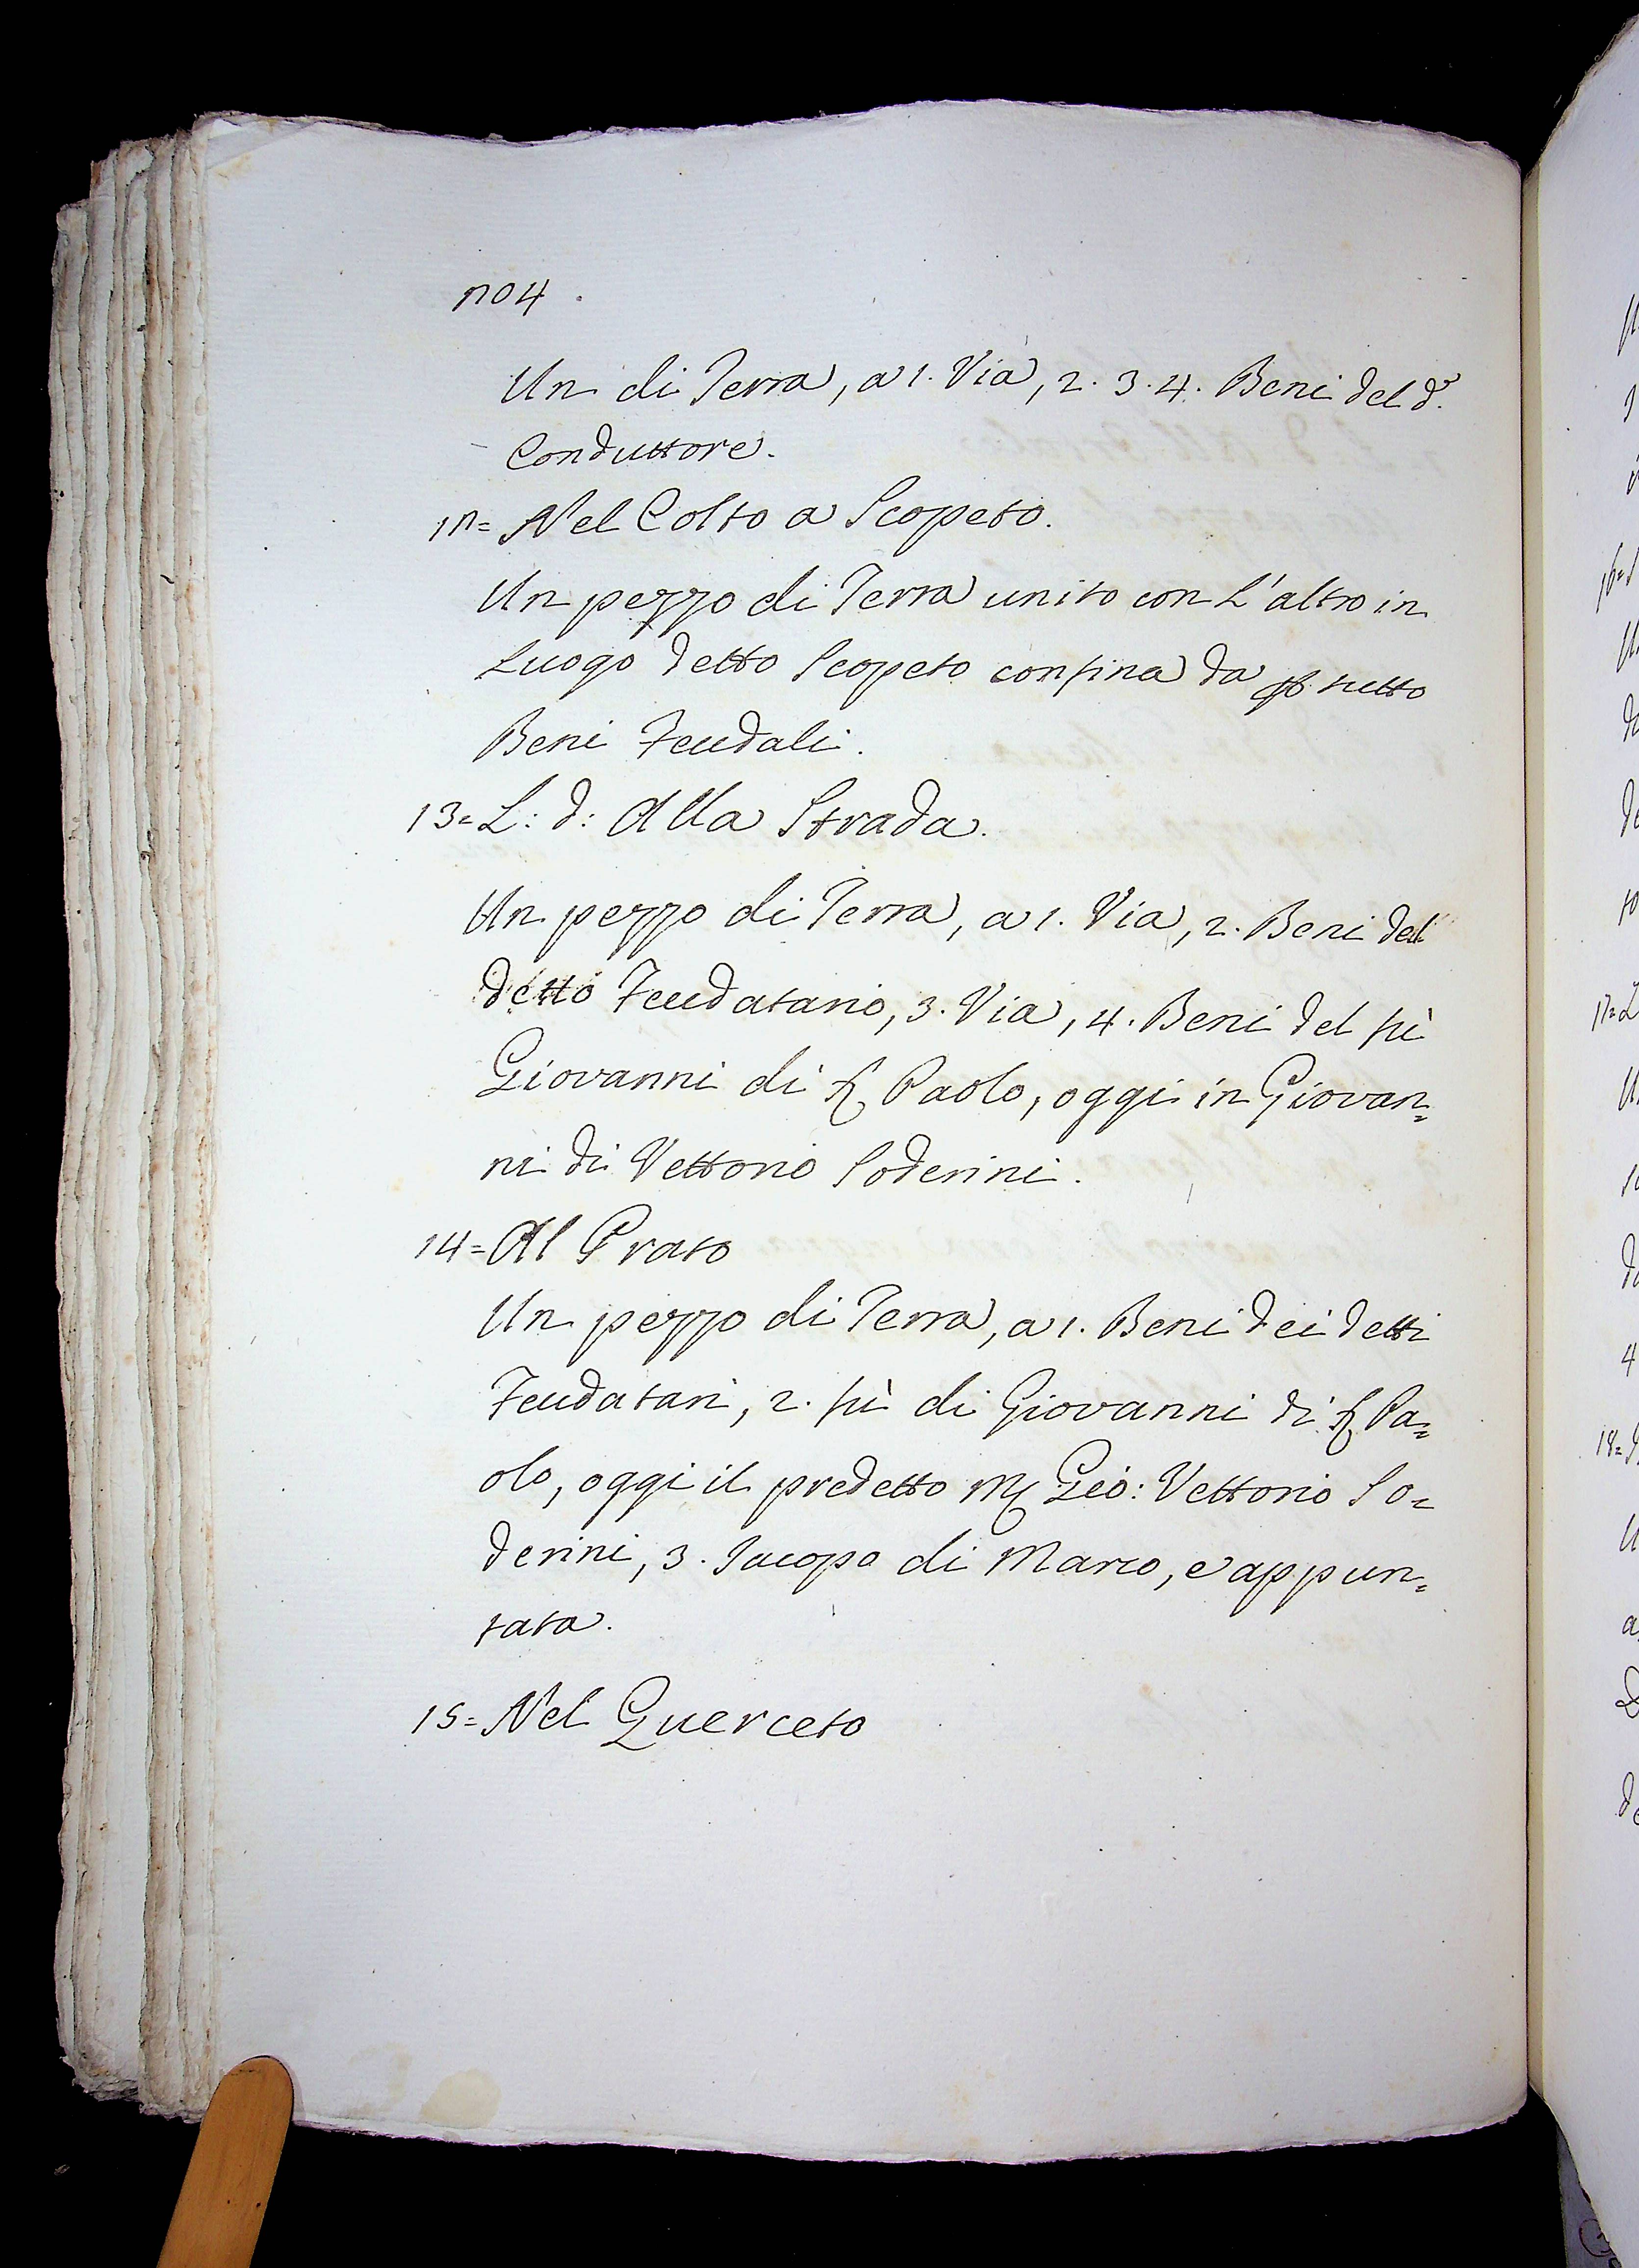 204
Un di Terra, a 1. Via, 2. 3. 4. Beni del d.º
Conduttore.
12= Nel Colto a Scopeto.
Un pezzo di Terra unito con L'altro in
Luogo detto Scopeto confina da tutto
Beni Feudali.
13= L: d: Alla Strada.
Un pezzo di Terra, a 1. Via, 2. Beni del
detto Feudatario, 3. Via, 4. Beni del fù
Giovanni di Paolo, oggi in Giovan=
ni di Vettorio Soderini.
14= Al Prato
Un pezzo di Terra, a 1. Beni dei detti
Feudatari, 2. fù di Giovanni di Pa=
olo, oggi il predetto Gio: Vettorio So=
derini, 3. Jacopo di Marco, e appun=
tata.
15= Nel Querceto